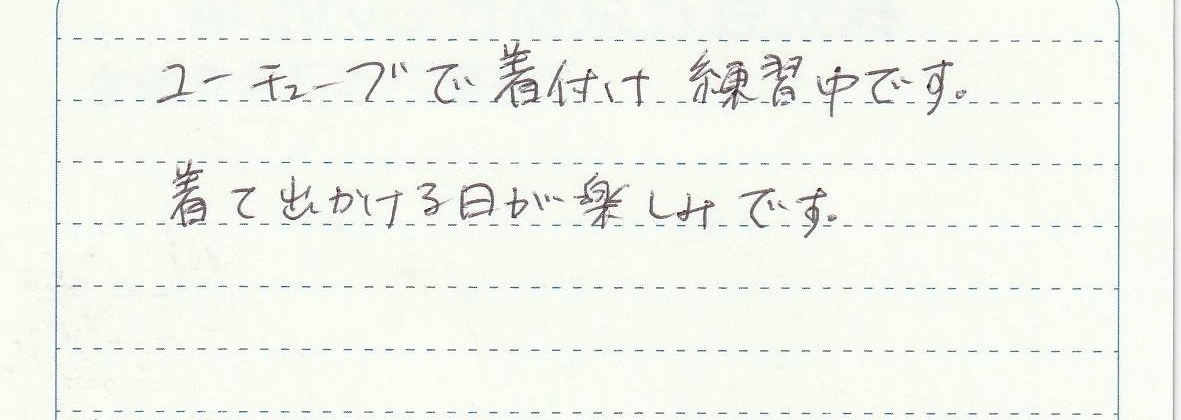 ユーチューブで着付け練習中です。
着て出かける日が楽しみです。